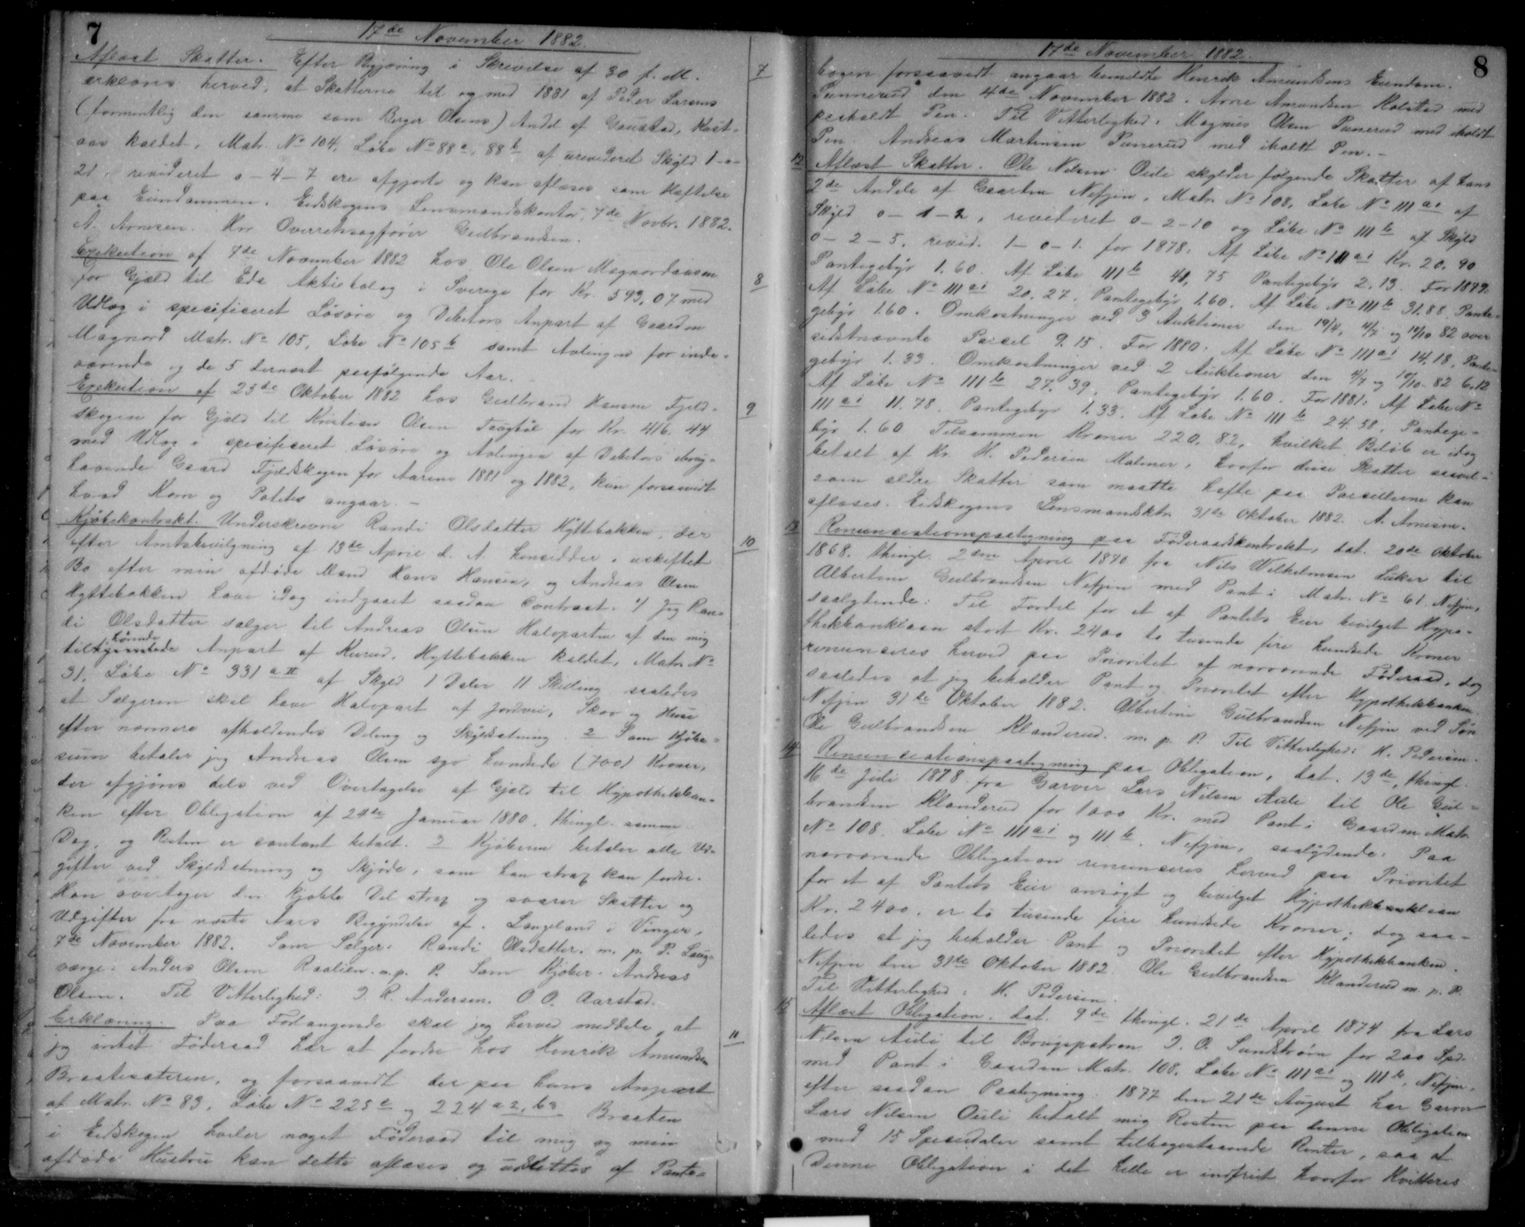 7
17de November 1882.
Aflæst Skatter. Efter Begjæring i Skrivelse af 30 f. M. 7
erklæres herved, at Skatterne til og med 1881 af Peder Larsens
(formentlig den samme som Berger Olsens) Andel af Gaustad,
aas kaldet, Matr. No 104, Løbe No 88a, 88b af urevideret Skyld 1-0-
21, revideret 0-4-7 ere afgjorte og kan aflæses som Heftelse
paa Eiendommen. Eidskogens Lensmandskontor, 7de Novbr. 1882.
A. Arnesen. Hr Overretssagfører Gulbransen.
Execution af 7de November 1882 hos Ole Olsen Magnordausen 8
for Gjæld til Eda Aktiebolag i Sverige for Kr. 593,07 med
Udlæg i specificeret Løsøre og Debitors Anpart af Gaarden
Magnord Matr. No 105, Løbe No 105b samt Avlingen for inde-
værende og de 5 dernæst paafølgende Aar.
Execution af 23de Oktober 1882 hos Gulbrand Hansen Fjeld- 9
skogen for Gjæld til Kristian Olsen for Kr. 416.44
med Udlæg i specificeret Løsøre og Avlingen af Debitors iboug-
havende Gaard Fjeldskogen for Aarene 1881 og 1882, kun forsaavidt
hvad Korn og Potetes angaar. -
Kjøbekontrakt: Underskrevne Randi Olsdatter Hyttebakken, der 10
efter Amtsbevilgning af 13de April d. A. hensidder i uskiftet
Bo efter min afdøde Mand Hans Hansen, og Andreas Olsen
Hyttebakken have idag indgaaet saadan Contract. 1) Jeg Ran-
di Olsdatter sælger til Andreas Olsen Halvparten af den mig
tilhørende Anpart af Kurud, Hyttebakken kaldet, Matr. No
31, Løbe No 331 a II af Skyld 1 Daler 11 Skilling saaledes
at Sælgeren skal have Halvpart af Jordvei, Skov og Huse
efter nærmere afholdendes Deling og Skyldsætning. 2 Som Kjøbe-
sum betaler jeg Andreas Olsen syv hundrede (700) Kroner,
der afgjøres dels ved Overtagelse af Gjæld til Hypothekban-
ken efter Obligation af 24de Januar 1880, thingl. samme
Dag, og Resten er contant betalt. 3 Kjøberen betaler alle Ud-
gifter ved Skyldsætning og Skjøde, som han strax kan fordre.
Han overtager den kjøbte Del strax og svarer Skatter og
Udgifter fra næste Aars Begyndelse af. Langeland i Vinger,
7de November 1882. Som Sælger: Randi Olsdatter. m. p. P. Laug-
værge: Anders Olsen Raalien. m. p. P. Som Kjøber: Andreas
Olsen. Til Vitterlighed: I. R. Andersen. O. O. Aarstad.
Erklæring. Paa Forlangende skal jeg herved meddele, at 11
jeg intet Føderaad har at fordre hos Henrik Amundsen
Braatesæteren, og forsaavidt der paa hans Anpart
af Matr. No 83, Løbe No 225c og 224 a2, b2 Braaten
i Eidskogen hviler noget Føderaad til mig og min
afdøde Hustru kan dette aflæses og udslettes af Pante-
8
17de November 1882.
bogen forsaavidt angaar bemeldte Henrik Amundsens Eiendom.
Punnerud den 4de November 1882. Arne Amundsen med
paaholdt Pen. Til Vitterlighed: Magnus Olsen Punnerud med iholdt
Pen. Andreas Martinsen Punnerud med iholdt Pen. -
12 Aflæst Skatter. Ole Nilsen Aule skylder følgende Skatter af hans
2de Andele af Gaarden Nefjin, Matr. No 108, Løbe No 111 a1 af
Skyld 0-1-2, revideret 0-2-10 og Løbe No 111b af Skyld
0-2-5, revid. 1-0-1. for 1878. Af Løbe No 111 a1 Kr. 20.90
Pantegebyr 1.60. Af Løbe 111b 41,75 Pantegebyr 2.13. For 1879.
Af Løbe No 111 a1 20.27. Pantegebyr 1.60. Af Løbe No 111b 31.88. Pante-
gebyr 1.60. Omkostninger ved 3 Auktioner den og 82 over
sidstnævnte Parcel 9.15. For 1880. Af Løbe No 111 a1 14.18, Pante-
gebyr 1.33. Omkostninger ved 2 Auktioner den og 82 6.12
Af Løbe No 111b 27.39, Pantegebyr 1.60. For 1881: Af Løbe No
111 a1 11.78. Pantegebyr 1.33. Af Løbe No 111b 24.58, Pantege-
byr 1.60 Tilsammen Kroner 220,82, hvilket Beløb er idag
betalt af Hr. H. Pedersen Matmor, hvorfor disse Skatter saavel-
som ældre Skatter som maatte hefte paa Parcellerne kan
aflæses. Eidskogens Lensmandsktr. 31te Oktober 1882. A. Arnesen.
13 Renunciationspaategning paa Føderaadskontrakt, dat. 20de Oktober
1868, thingl. 2den April 1870 fra Nils Vilhelmsen til
Albertine Gulbrandsen Nefjin med Pant i Matr. No 61 Nefjin,
saalydende: Til Fordel for et af Pantets Eier bevilget Hypo-
thekbanklaan stort Kr. 2400 to tusende fire hundrede Kroner
renunceres herved paa Prioritet af nærværende Føderaad, dog
saaledes at jeg beholder Pant og Prioritet efter Hypothekbanken.
Nefjin 31te Oktober 1882. Albertine Gulbrandsen Nefjin ved Søn
Ole Gulbrandsen Klanderud. m. p. P. Til Vitterlighed: H. Pedersen.
14 Renunciationspaategning paa Obligation, dat. 13de, thingl.
16de Juli 1878 fra Garver Lars Nilsen Aule til Ole Gul-
brandsen Klanderud for 1000 Kr. med Pant i Gaarden Matr.
No 108. Løbe No 111 a1 og 111b, Nefjin, saalydende: Paa
nærværende Obligation renunceres herved paa Prioritet
for et af Pantets Eier ansøgt og bevilget Hypothekbanklaan
Kr. 2400, er to tusende fire hundrede Kroner; dog saa-
ledes at jeg beholder Pant og Prioritet efter Hypothekbanken.
Nefjin den 31te Oktober 1882. Ole Gulbrandsen Klanderud m. p. P.
Til Vitterlighed: H. Pedersen.
15 Aflæst Obligation. dat. 9de thingl. 21de April 1874 fra Lars
Nilsen Aule til Brugspatron I. O. Sundstrøm for 200 Spd.
med Pant i Gaarden Matr. 108. Løbe No 111 a1 og 111b, Nefjin,
efter saadan Paategning: 1877 den 21de August har Garver
Lars Nilsen Oule betalt mig Resten paa denne Obligation
med 15 Speciedaler samt tilbagestaaende Renter, saa at
denne Obligation i det hele er indfriet hvorfor kvitteres